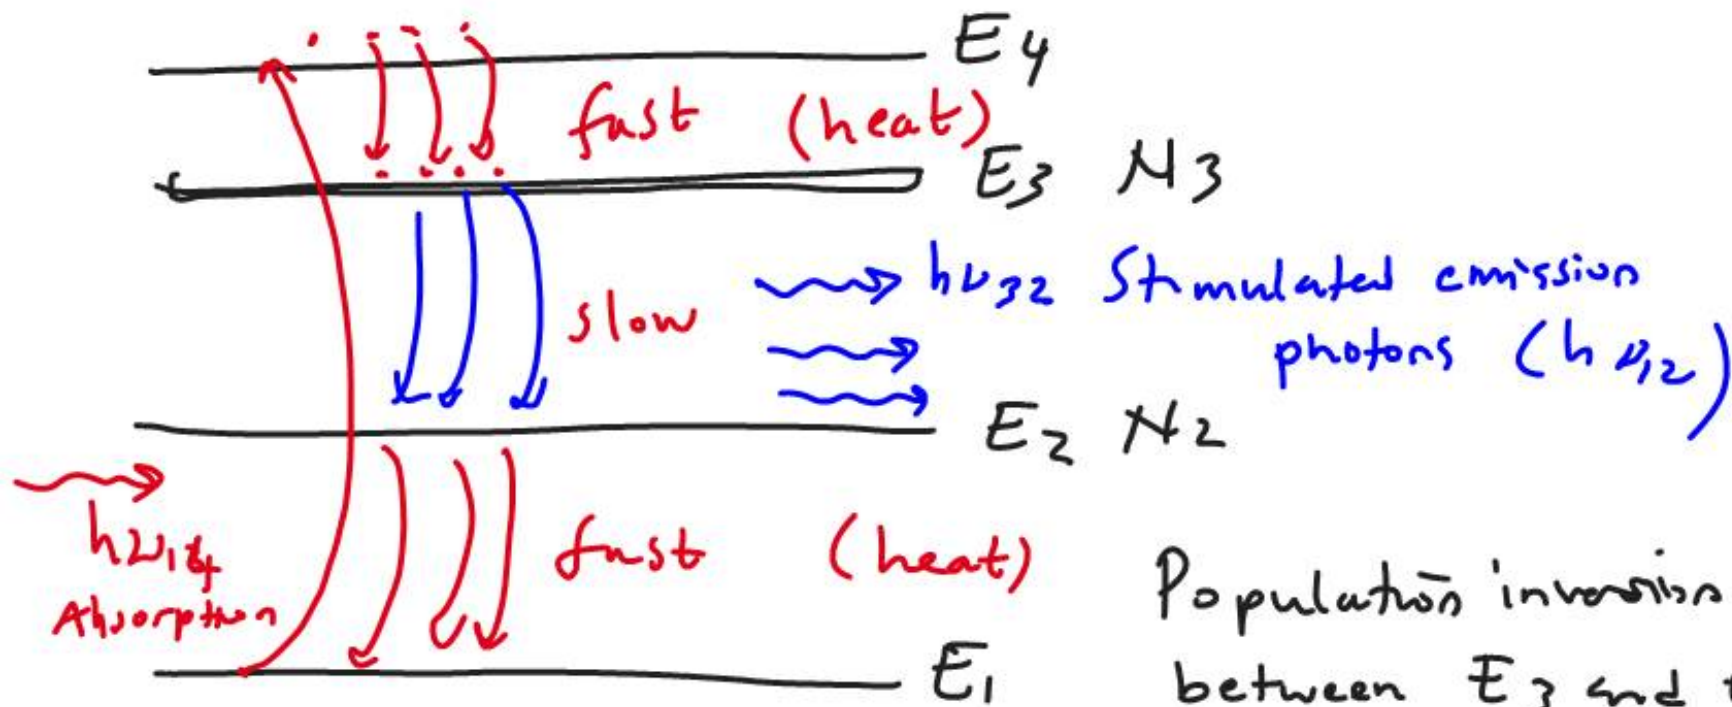 E4
fast (heat)
E3 N3
hν32 Stimulated emission
slow
photons (hν12)
E2 N2
hν14
Absorption
fast (heat)
Population inversion
E1
between E3 and